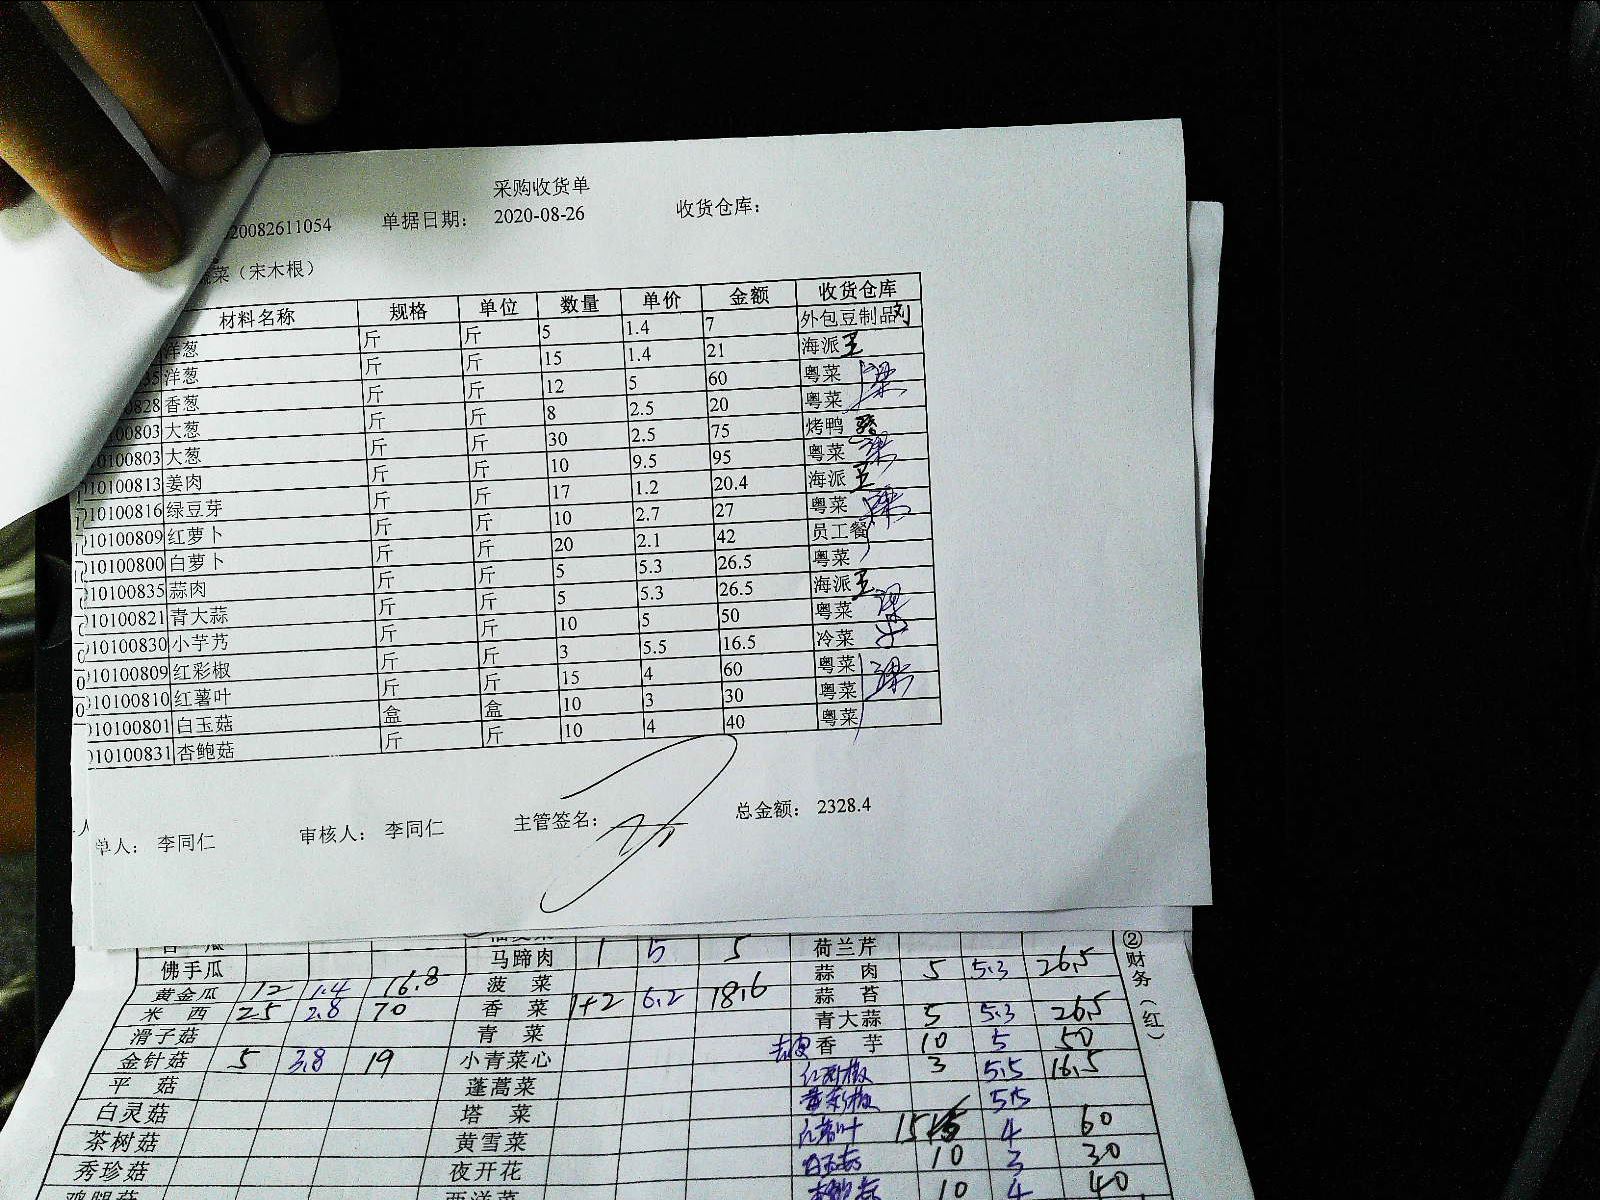 采购收货单
20082611054 单据日期： 2020-08-26 收货仓库：
菜（宋木根）
材料名称 规格 单位 数量 单价 金额 收货仓库
洋葱 斤 斤 5 1.4 7 外包豆制品 刘
35 洋葱 斤 斤 15 1.4 21 海派 王
0828 香葱 斤 斤 12 5 60 粤菜
00803 大葱 斤 斤 8 2.5 20 粤菜
0100803 大葱 斤 斤 30 2.5 75 烤鸭
10100813 姜肉 斤 斤 10 9.5 95 粤菜
10100816 绿豆芽 斤 斤 17 1.2 20.4 海派 王
10100809 红萝卜 斤 斤 10 2.7 27 粤菜
10100800 白萝卜 斤 斤 20 2.1 42 员工餐
10100835 蒜肉 斤 斤 5 5.3 26.5 粤菜
10100821 青大蒜 斤 斤 5 5.3 26.5 海派 王
10100830 小芋艿 斤 斤 10 5 50 粤菜
10100809 红彩椒 斤 斤 3 5.5 16.5 冷菜
10100810 红薯叶 斤 斤 15 4 60 粤菜
10100801 白玉菇 盒 盒 10 3 30 粤菜
10100831 杏鲍菇 斤 斤 10 4 40 粤菜
单人： 李同仁 审核人： 李同仁 主管签名： 总金额： 2328.4
佛手瓜 马蹄肉 1 5 5 荷兰芹
黄金瓜 12 1.4 16.8 菠菜 蒜肉 5 5.3 26.5
米西 25 2.8 70 香菜 1+2 6.2 18.6 蒜苔
滑子菇 青菜 青大蒜 5 5.3 26.5
金针菇 5 3.8 19 小青菜心 去皮 香芋 10 5 50
平菇 蓬蒿菜 红彩椒 3 5.5 16.5
白灵菇 塔菜 黄彩椒 5.5
茶树菇 黄雪菜 红薯叶 15 4 60
秀珍菇 夜开花 白玉菇 10 3 30
鸡腿菇 西洋菜 杏鲍菇 10 4 40
②财务（红）